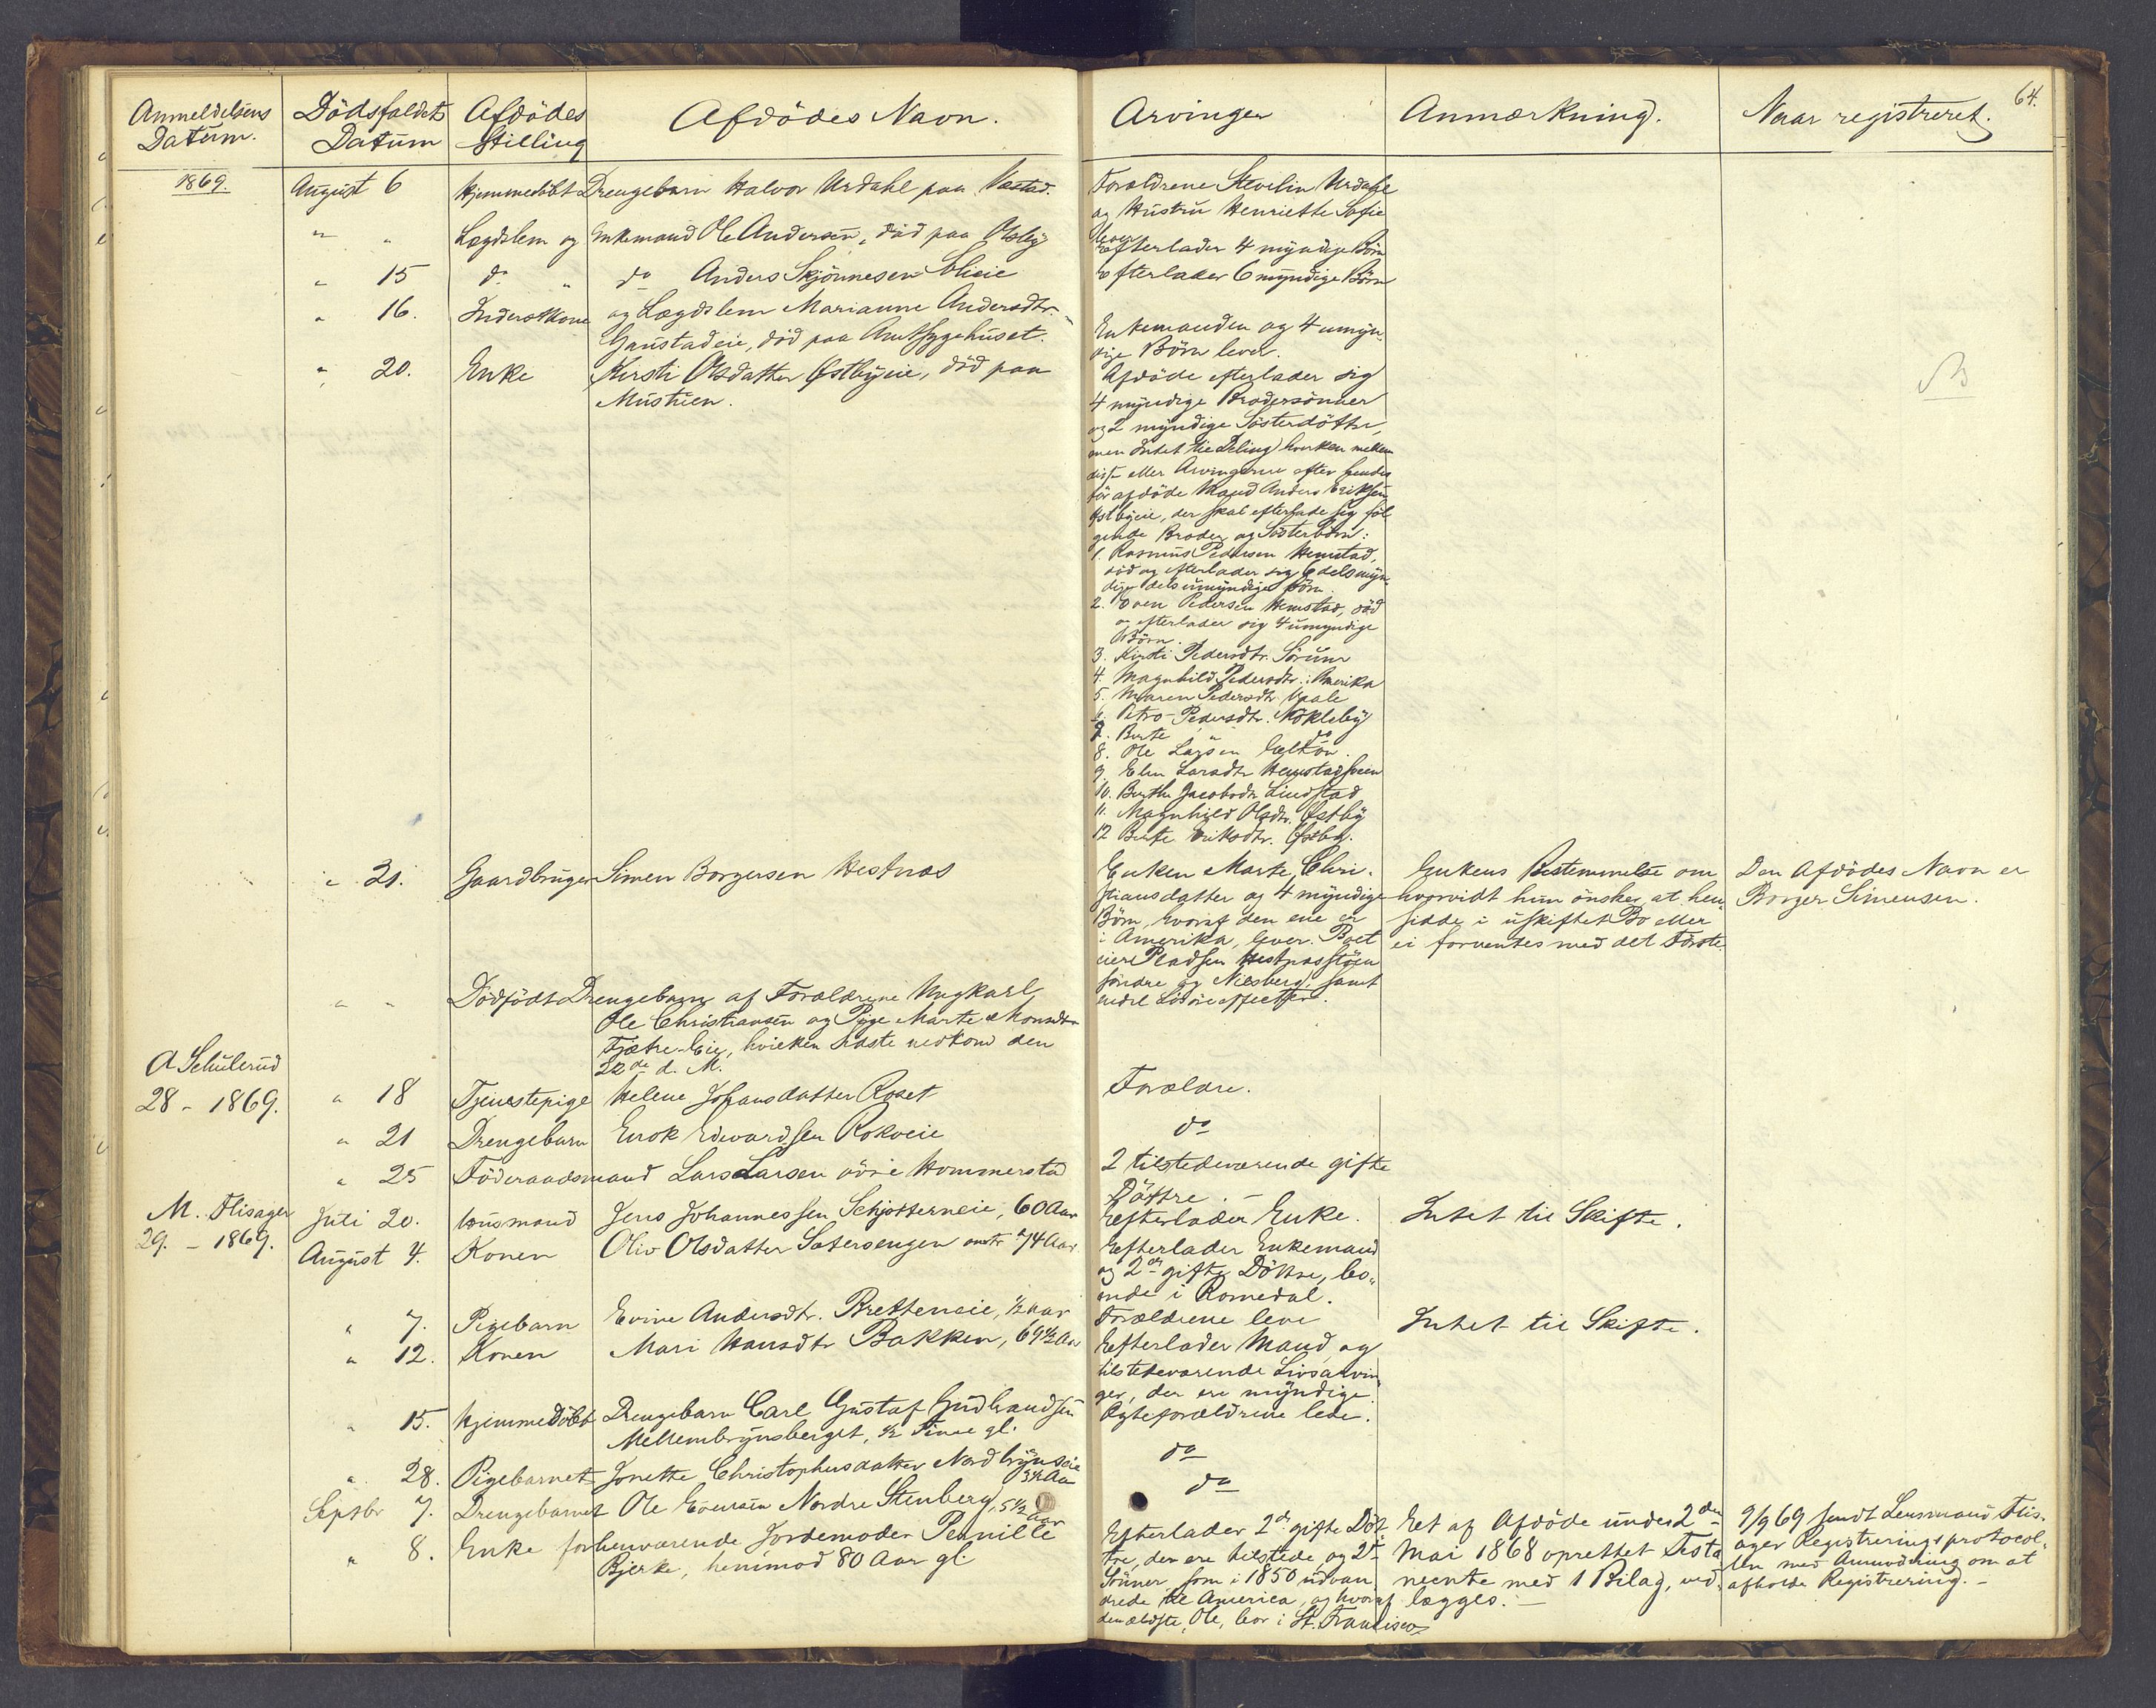 Anmeldelsens Datum.
Dödsfaldets Datum
Afdödes Stilling
Afdödes Navn.
Arvinger
Anmærkning.
Naar registreret.
64.
1869.
August 6 Hjemmedöbt Drengebarn Halvor Urdahl paa
Forældrene Urdahl
og Hustru Henriette Sofie
lever
" " Lægdslem og Enkemand Ole Andersen, död paa Olsby
Efterlader 4 myndige Börn
" 15 do " do Anders Skjönnesen
Efterlader 6 myndige Börn
" 16. Inderstkone og Lægdslem Marianne Andersdtr.
Gaustadeie, död paa Amtsygehuset.
Enkemanden og 4 umyn-
dige Börn lever.
" 20. Enke Kirsti Olsdatter Østbyeie, död paa
Mustuen.
Afdöde efterlader sig
4 myndige Brodersönner
og 2 myndige Sösterdöttre,
men Intet til Deling hverken mellem
disse eller Arvingerne efter hendes
för afdöde Mand Anders Eriksen
Østbyeie, der skal efterlade sig föl
gende Broder og Sösterbörn:
1. Rasmus Pedersen Hemstad,
död og efterlader sig 6 dels myn-
dige dels umyndige Börn.
2. Even Pedersen Hemstad, död
og efterlader sig 4 umyndige
Börn.
3. Kirsti Pedersdtr. Sörum
4. Magnhild Pedersdtr. i Amerika
5. Maren Pedersdtr.
6. Pedersdtr. Nökleby
7. Berte " do
8. Ole Larsen
9. Elen Larsdtr Hemstadsveen
10. Berthe Jacobsdtr Lindstad
11. Magnhild Olsdtr. Østby
12 Berte Eriksdtr. Østby.
" 21. Gaardbruger Simen Borgersen Hestnæs
Enken Marte Chri-
stiansdatter og 4 myndige
Börn, hvoraf den ene er
i Amerika, lever. Boet
eier Pladsen Hestnæsstöen
söndre og Nilsberg, samt
endel Lösöreeffecter.
Enkens Bestemmelse om
hvorvidt hun önsker at hen-
sidde i uskiftet Bo eller
ei forventes med det Förste
Den Afdödes Navn er
Borger Simensen.
" " Dödfödt Drengebarn af Forældrene Ungkarl
Ole Christiansen og Pige Marte Monsdtr
Fjætre-Eie, hvilken sidste nedkom den
22de d. M.
A Schulerud
28 - 1869.
" 18 Tjenestepige Helene Johansdatter Roset
Forældre.
" 21 Drengebarn Enok Edvardsen Rokoeie
do
" 25 Föderaadsmand Lars Larsen övre Hommerstad
2 tilstedeværende gifte
Döttre. -
M. Flisager
29. - 1869.
Juli 20. Husmand Jens Johannessen Schjötterneie, 60 Aar
Efterlader Enke.
Intet til Skifte.
August 4. Konen Oliv Olsdatter Sætersengen omtr 74 Aar.
Efterlader Enkemand
og 2de gifte Döttre, bo-
ende i Romedal.
" 7. Pigebarn Evine Andersdtr. Bretteneie, ½ aar
Forældrene leve
" 12. Konen Mari Hansdtr Bakken, 69½ Aar
Efterlader Mand og
tilstedeværende Livsarvin-
ger, der ere myndige.
Intet til Skifte.
" 15. Hjemmedöbt Drengebarn Carl Gustaf Gudbrandsen
Mellembrynsberget, ½ Time gl.
Ægteforældrene leve.
" 28. Pigebarnet Jonette Christophersdatter Nordbrynseie
3½ Aar
do
Septbr 7. Drengebarnet Ole Evensen Nordre Stenberg, 5½ Aar
do
" 8. Enke forhenværende Jordemoder Pernille
Bjerke, henimod 80 Aar gl.
Efterlader 2de gifte Döt-
tre, der ere tilstede, og 2de
Sönner som i 1850 udvan-
drede til America, og hvoraf
den ældste, Ole, bor i St. Francisco
Eet af Afdöde under 2den
Mai 1868 oprettet Testa-
mente med 1 Bilag, ved-
lægges. -
9/9 69 sendt Lensmand Flis-
ager Registreringsprotocol-
len med Anmodning om at
afholde Registrering. -